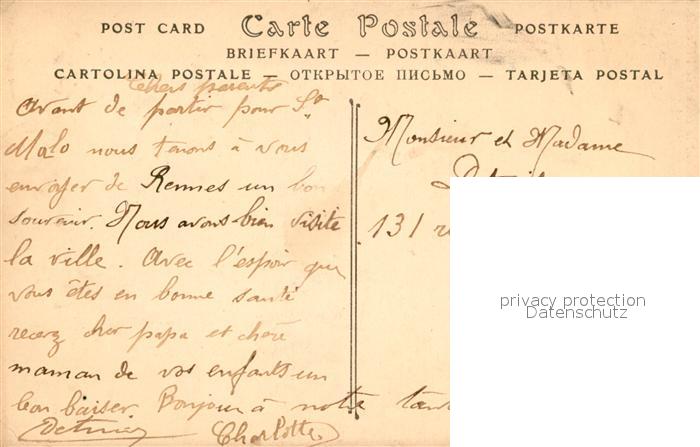 POST CARD Carte Postale POSTKARTE
BRIEFKAART — POSTKAART
CARTOLINA POSTALE — ОТКРЫТОЕ ПИСЬМО — TARJETA POSTAL
Chers parents
Avant de partir pour St
Malo nous tenons à vous
envoyer de Rennes un bon
souvenir. Nous avons bien visité
la ville. Avec l'espoir que
vous êtes en bonne santé
recevez cher papa et chère
maman de vos enfants un
bon baiser. Bonjour à notre
Charlotte
Monsieur et Madame
131
privacy protection
Datenschutz